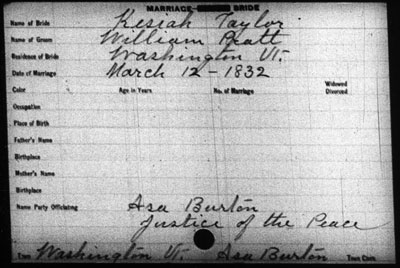 MARRIAGE— BRIDE
Name of Bride Kesiah Taylor
Name of Groom William Pratt
Residence of Bride Washington Vt.
Date of Marriage March 12-1832
Color Age in Years No. of Marriage Widowed Divorced
Occupation
Place of Birth
Father's Name
Birthplace
Mother's Name
Birthplace
Name Party Officiating Asa Burton
Justice of the Peace
Town Washington Vt. Asa Burton Town Clerk